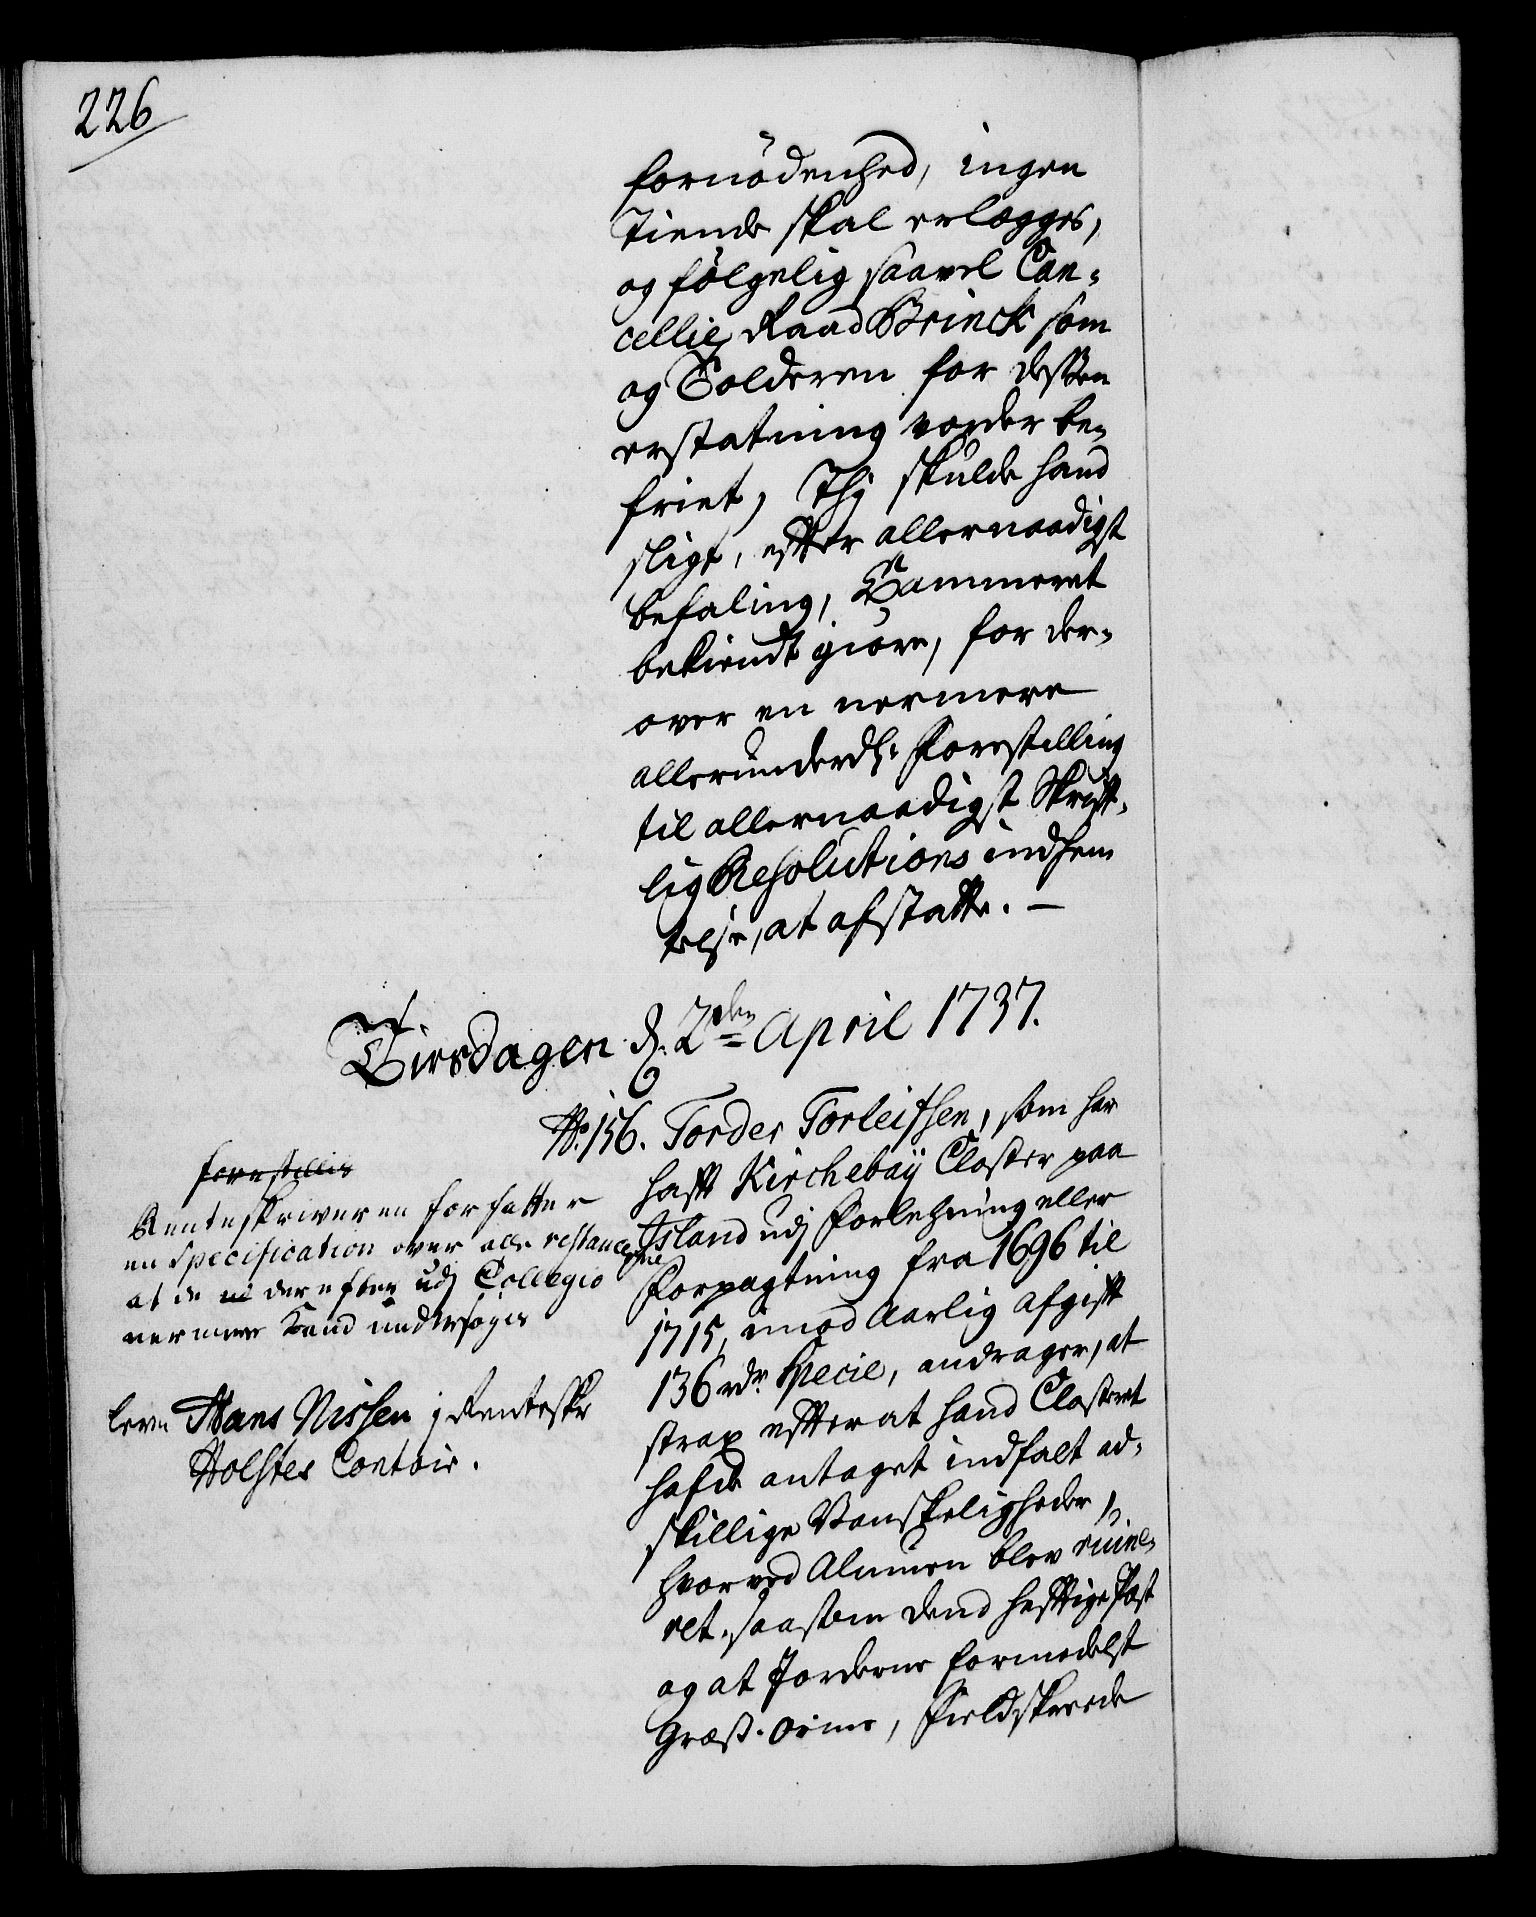 226
fornödenhed, ingen
Tiende skal erlegges,
og fölgelig saavel Can-
cellie Raad Brinck som
og Solderen for dessen
erstatning vorder be-
friet, Thj skulde hand
sligt, efter allernaadigst
befaling, Cammeret
bekiendt giöre, for der-
over en nermere
allerunderd: Forestilling
til allernaadigst Skrift-
lig Resolutions indhen
telse, at afstatte. —
Tirsdagen d. 2den April 1737.
No. 156. Torder Torleifsen, som har
haft Kirchebaÿ Closter paa
Island udj Forlehning eller
Forpagtning fra 1696 til
1715, imod Aarlig afgift
136 rdr. Specie, andrager, at
strax efter at hand Closteret
hafde antaget indfalt ad-
skillige Vanskeligheder,
hvorved Almuen blev ruine-
ret, saasom dend heftige Pest
og at Jorderne formedelst
Græß-Orme, Fieldskreede
forestillis
Renteskriveren forfatter
en Specification over alle restancerne
at de derefter udj Collegio
nermere kand undersøges
lev. Hans Nissen j Renteskr
Holstes Contoir.